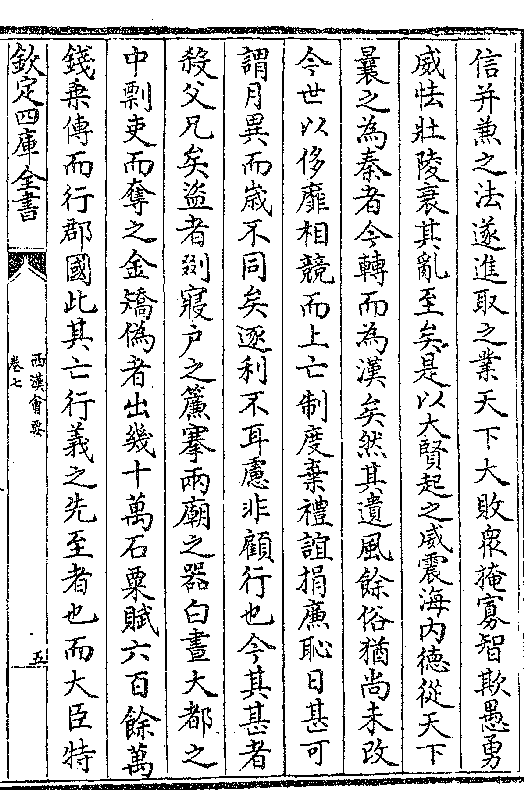 信并兼之法遂進取之業天下大敗衆掩寡智欺愚勇
威怯壯陵衰其亂至矣是以大賢起之威震海内德從天下
曩之為秦者今轉而為漢矣然其遺風餘俗猶尚未改
今世以侈靡相競而上亡制度棄禮誼捐廉恥日甚可
謂月異而歲不同矣逐利不耳慮非顧行也今其甚者
殺父兄矣盜者剟寢户之簾搴兩廟之器白晝大都之
中剽吏而奪之金矯偽者出幾十萬石粟賦六百餘萬
錢乗傳而行郡國此其亡行義之先至者也而大臣特
欽定四庫全書
西漢會要
卷七
五